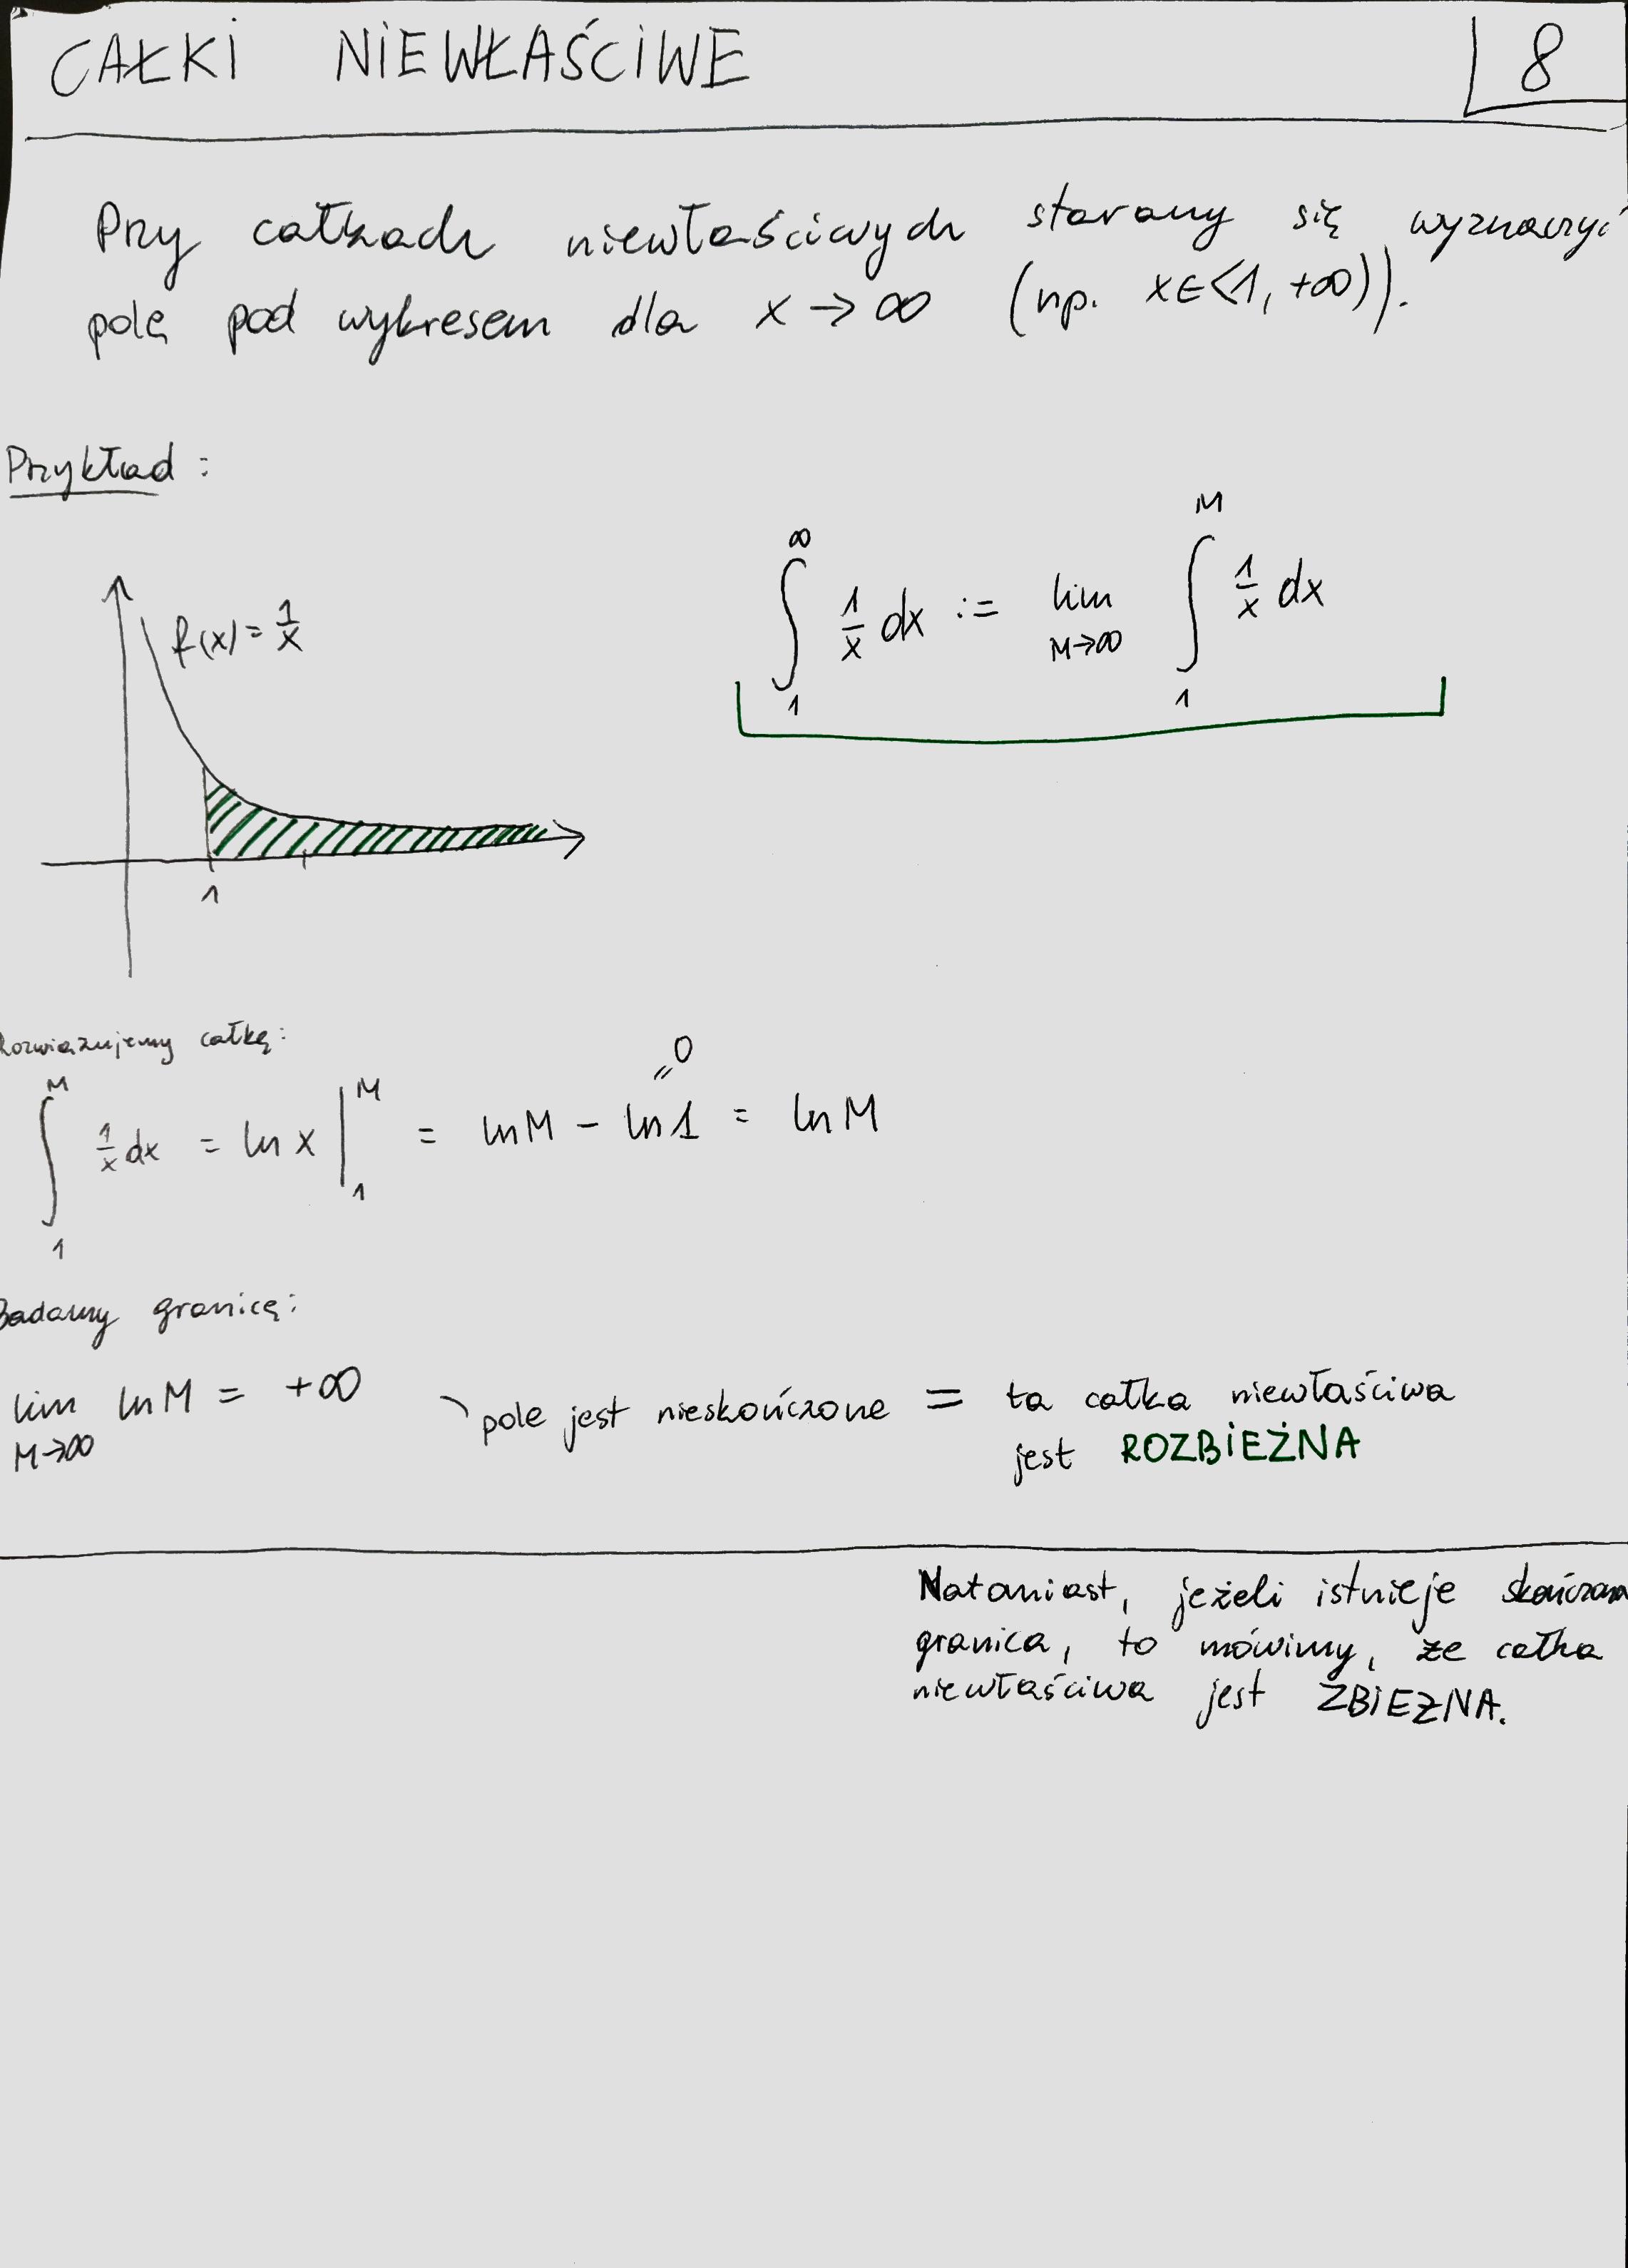 CAŁKI NIEWŁAŚCIWE
8
Przy całkach niewłaściwych staramy się wyznaczyć
pole pod wykresem dla x → ∞ (np. x∈<1, +∞)).
Przykład:
f(x) = 1/x
1
∫₁^∞ 1/x dx := lim_{M→∞} ∫₁^M 1/x dx
Rozwiązujemy całkę:
∫₁^M 1/x dx = ln x |₁^M = ln M - ln 1 = ln M
= 0
Badamy granicę:
lim_{M→∞} ln M = +∞ pole jest nieskończone = ta całka niewłaściwa
jest ROZBIEŻNA
Natomiast, jeżeli istnieje skończona
granica, to mówimy, że całka
niewłaściwa jest ZBIEŻNA.